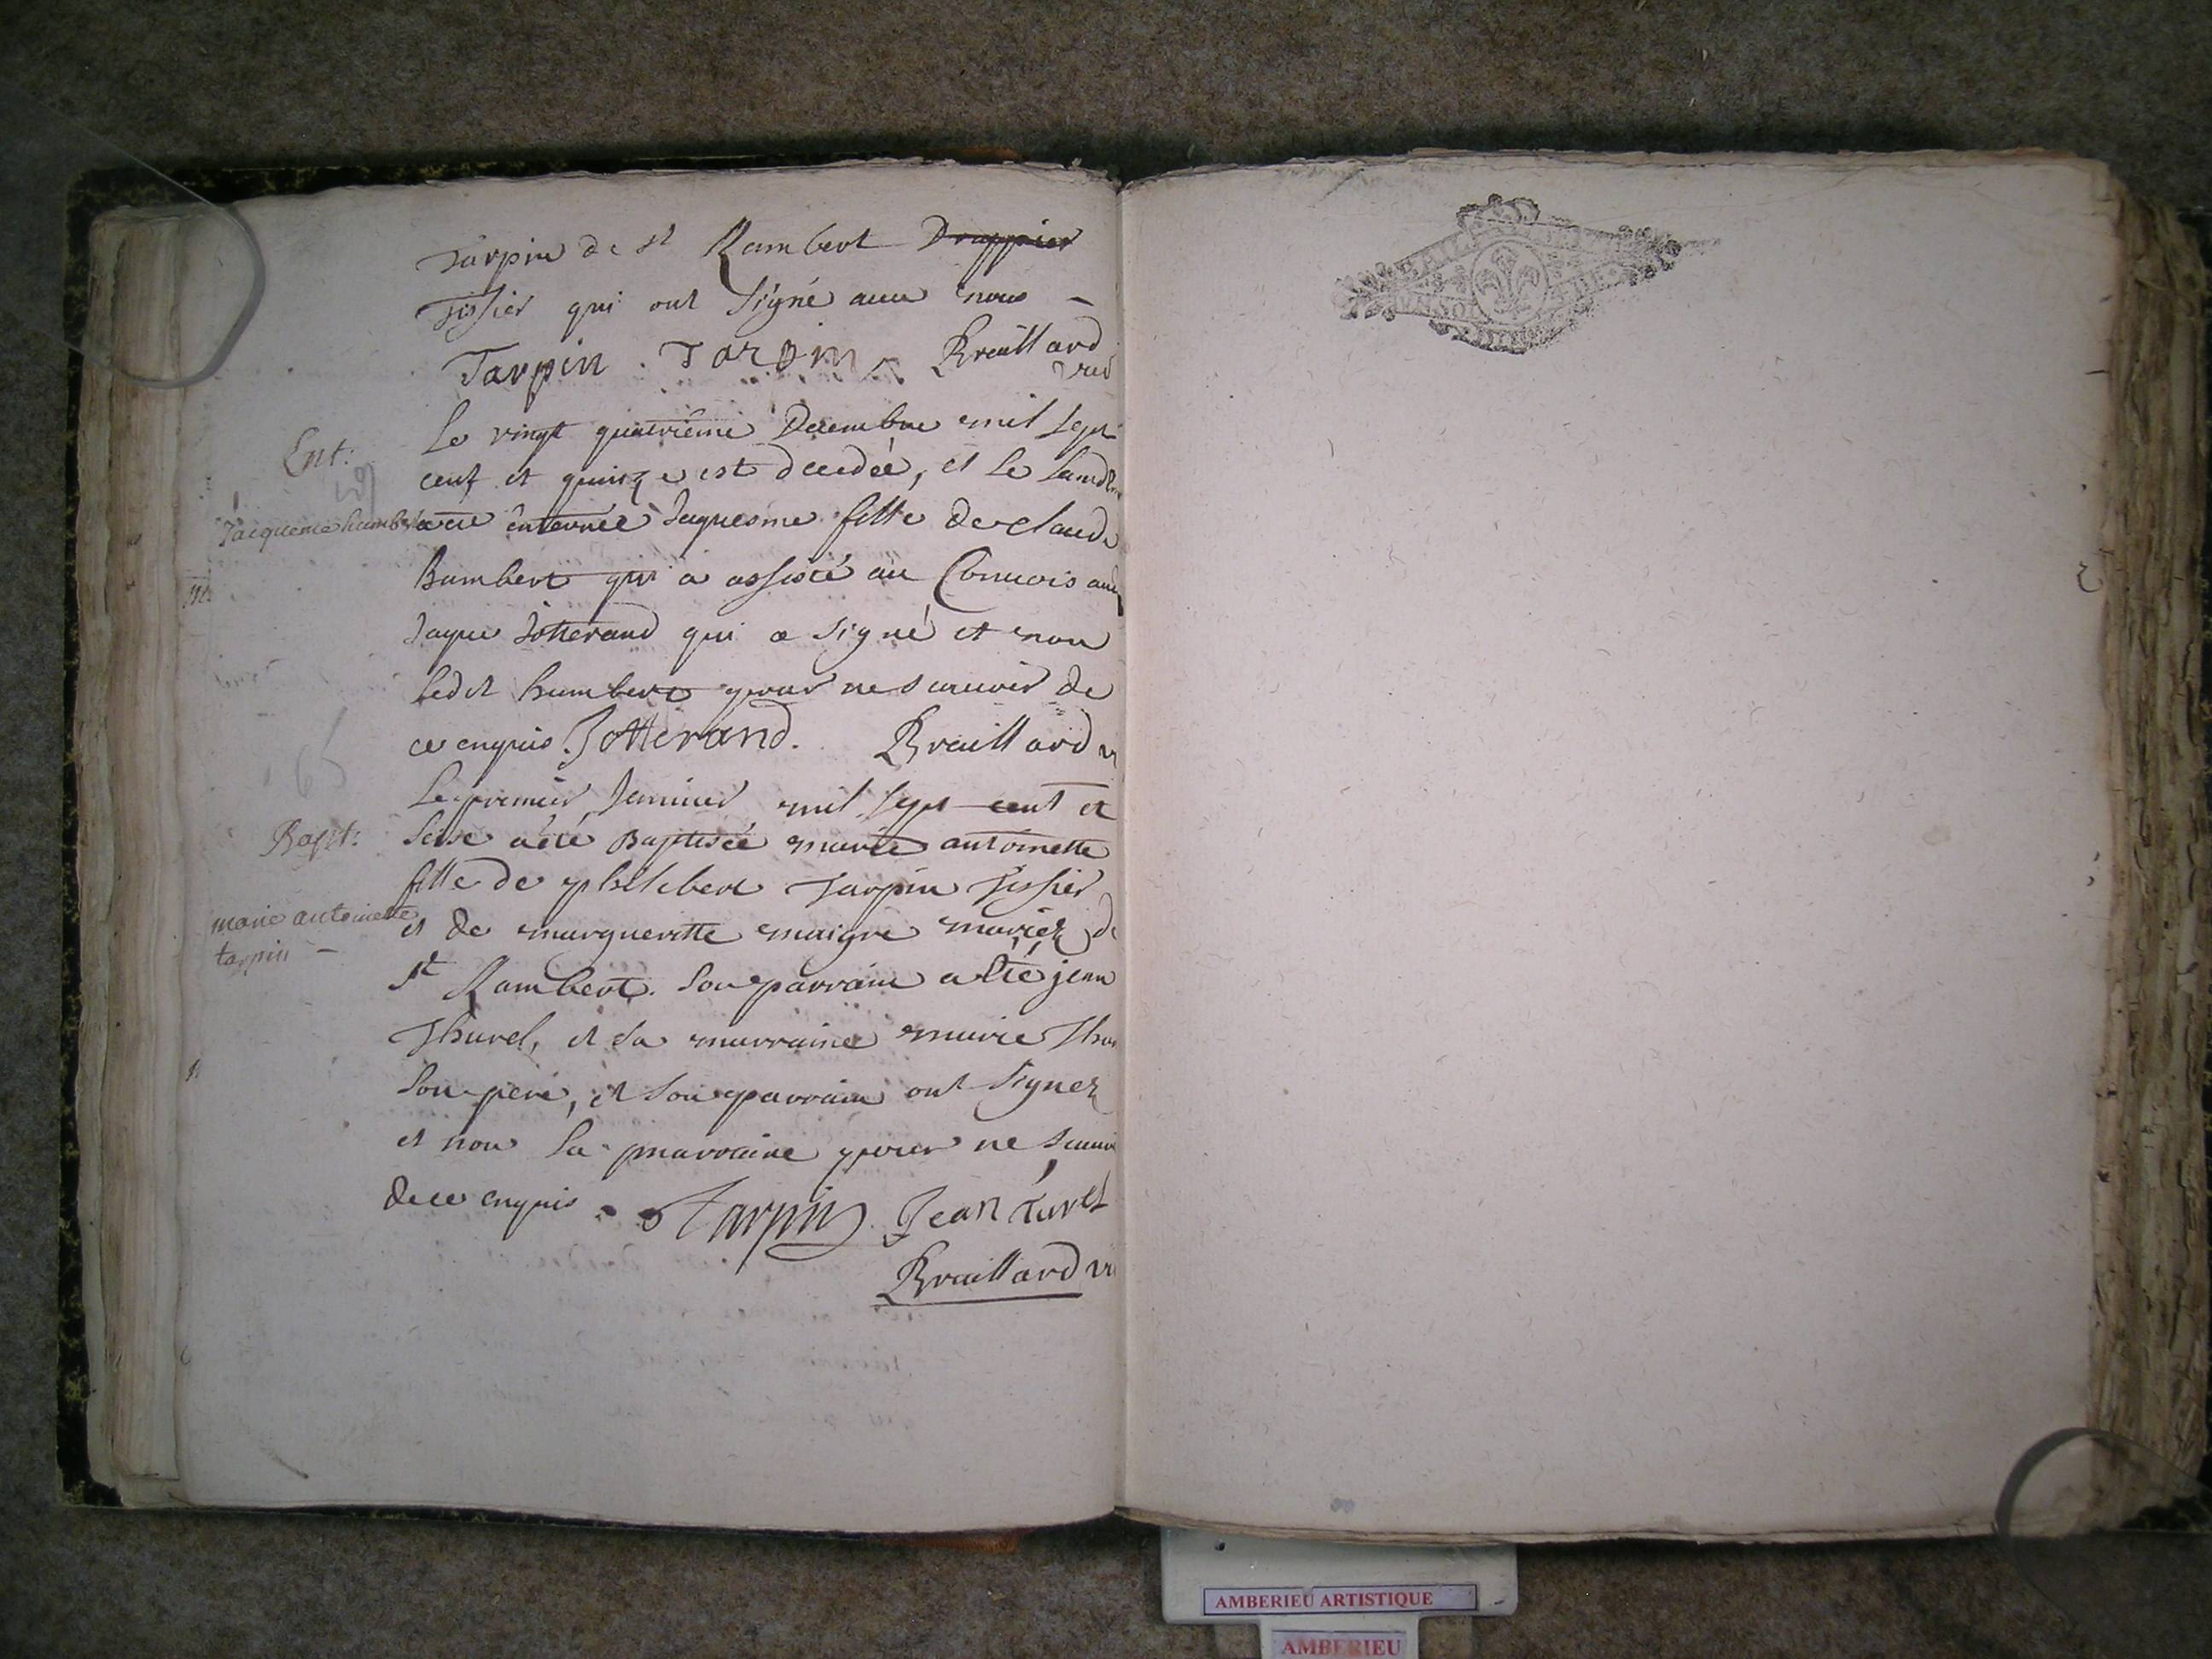 Tarpin de St Rambert Drappier
Tissier qui ont signé avec nous -
Tarpin. Tarpin Breillard
Ent: Le vingt quatrième Decembre mil sept
cent et quinze est decedée, et le landem
Jacqueme humbert a été enterrée Jaquesme fille de claude
humbert qui a assisté au Convois avec
Jaque Jotterand qui a signé et non
ledit humbert pour ne scavoir de
ce enquis. Jotterand. Breillard
65
Le premier Janvier mil sept cent et
Bapt: seise a été Baptisée marie antoinette
fille de philibert Tarpin Tissier
marie antoinette et de margueritte maigre mariez de
tarpin - St Rambert. Son parrain a été jean
Thurel, et sa marraine marie
Son pere, et son parrain ont signez
et non la marraine pour ne
de ce enquis. Tarpin Jean Turel
Breillard
AMBERIEU ARTISTIQUE
AMBERIEU